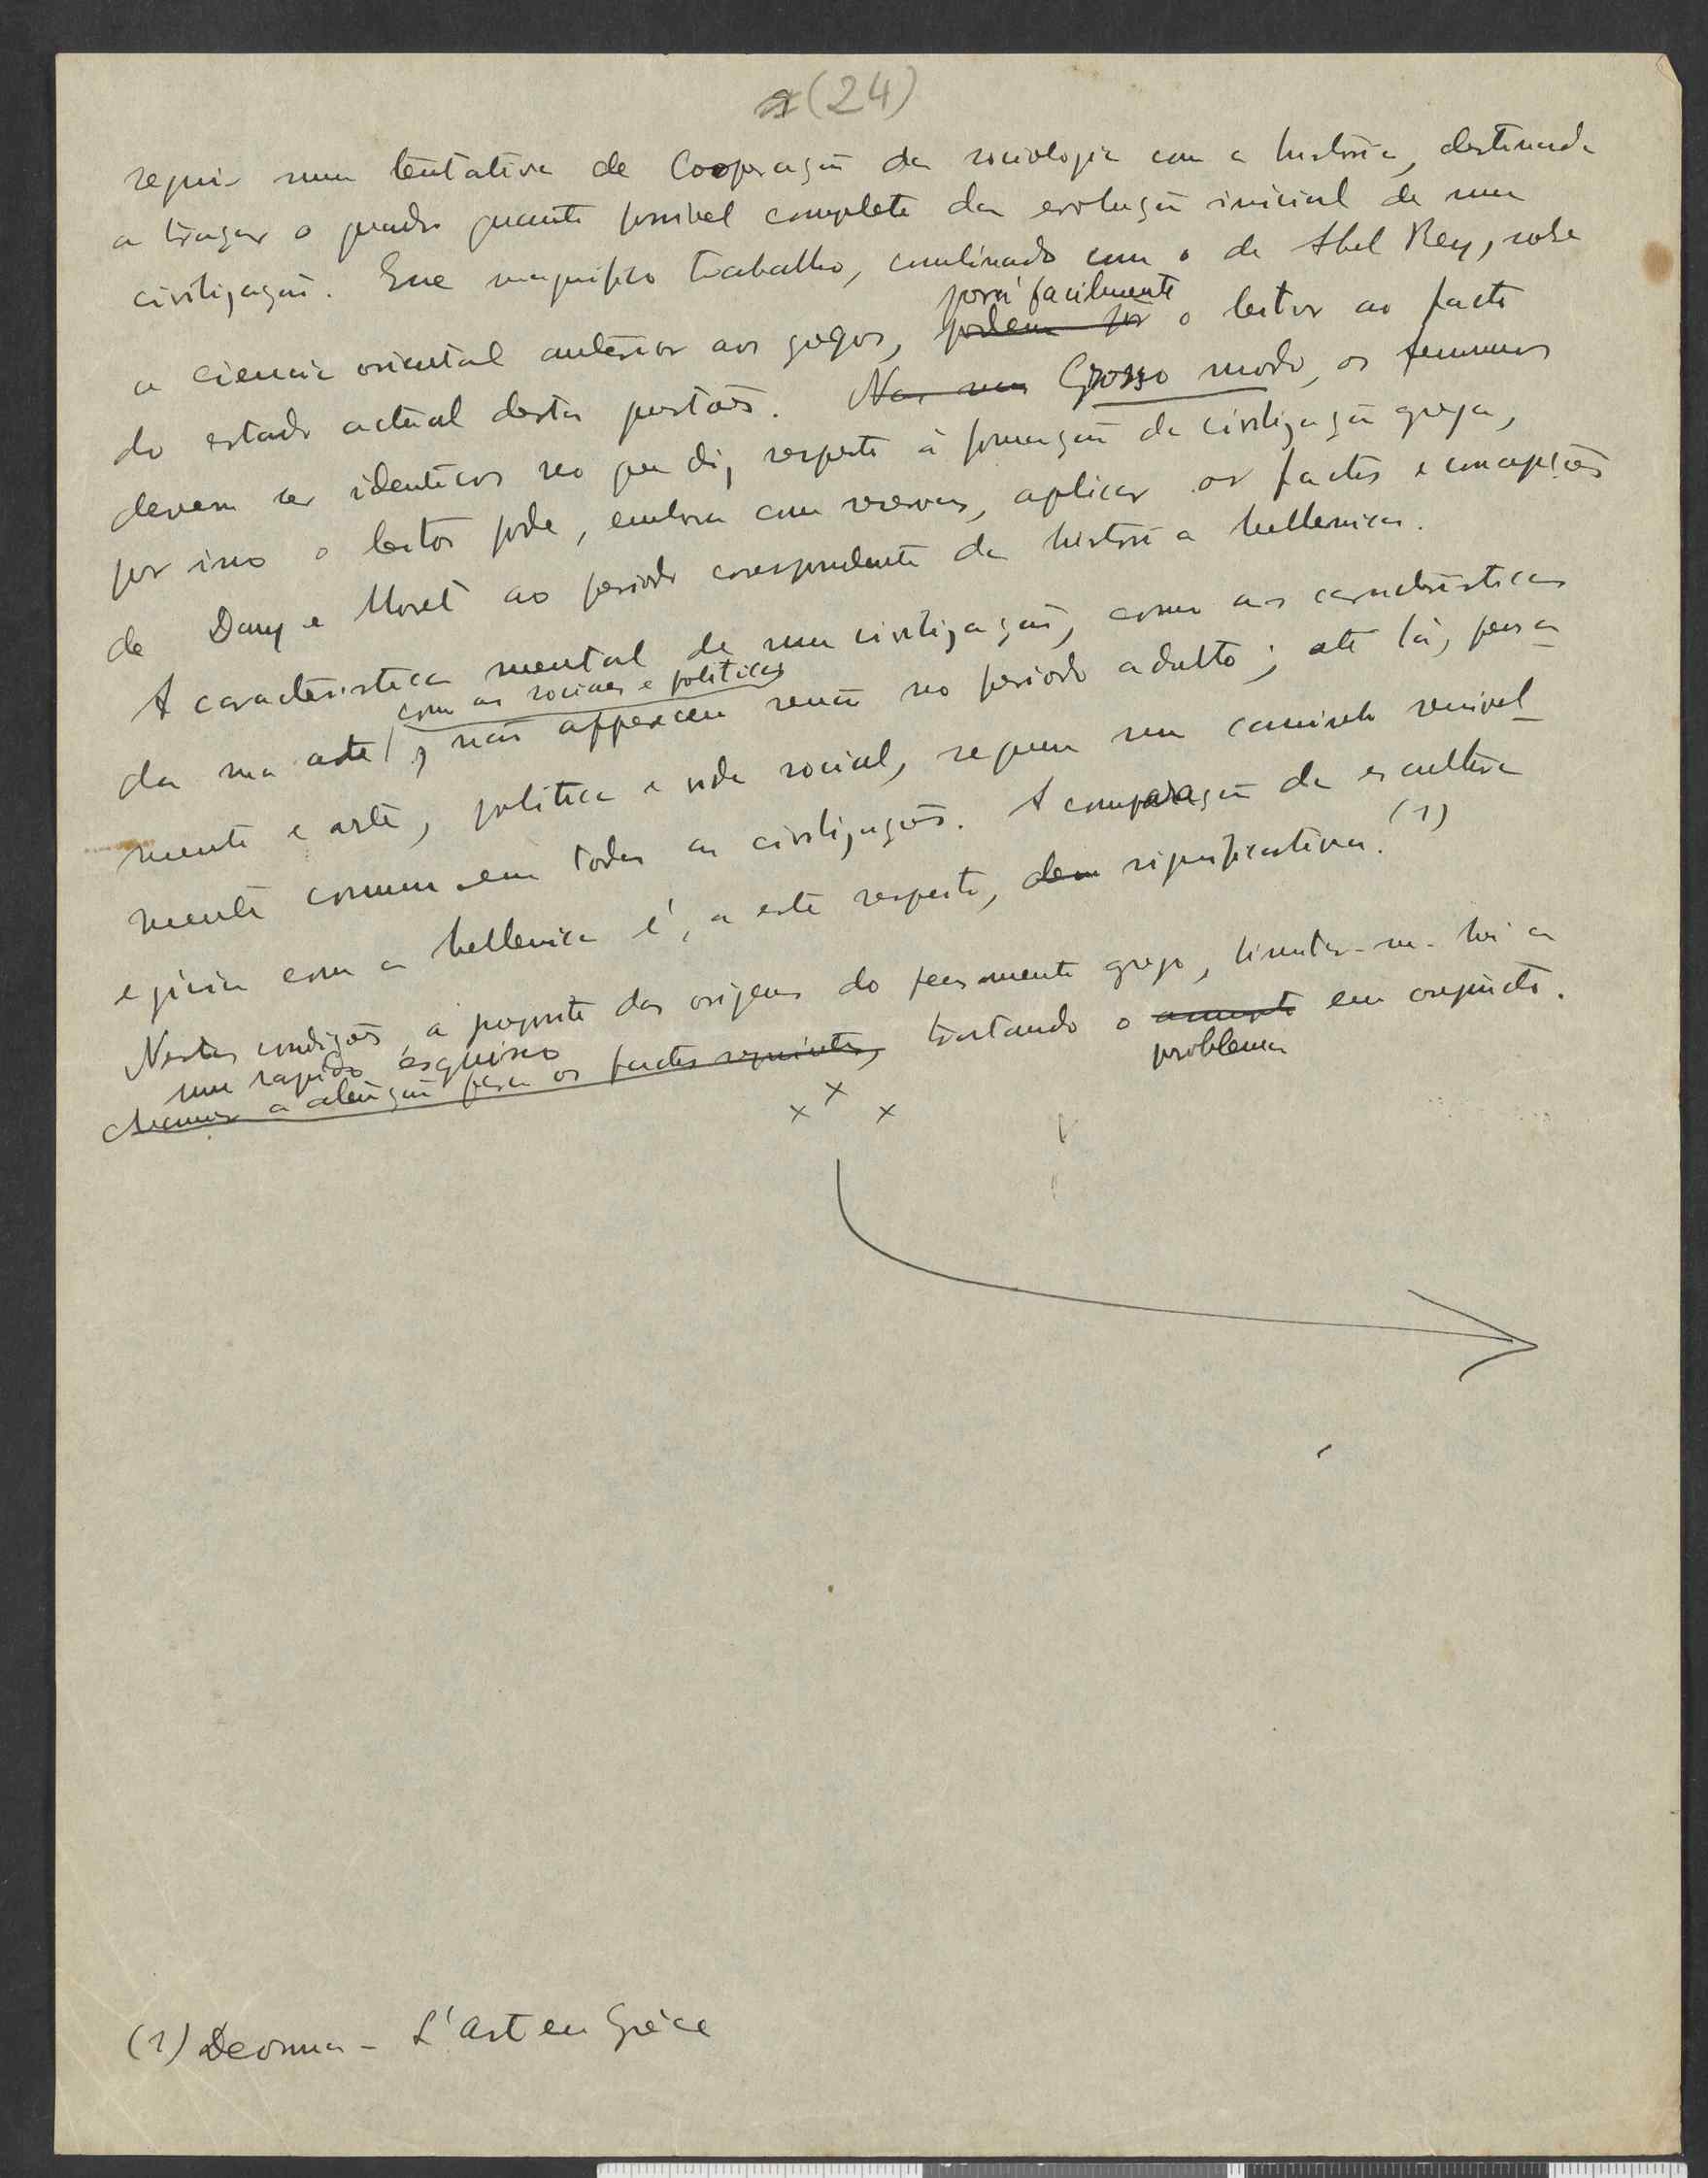 (24)
seguir uma tentativa de Cooperação da sociologia com a historia, destinada
a traçar o quadro quanto possivel completo da evolução inicial de uma
civilização. Esse magnifico trabalho, combinado com o de Abel Rey, sobre
porá facilmente
a ciencia oriental anterior aos gregos, podem pôr o leitor ao facto
do estado actual destas questões. Nas suas Grosso modo, os fenomenos
devem ser identicos no que diz respeito á formação da civilização grega,
por isso o leitor pode, embora com reservas, aplicar os factos e concepções
de Davy e Moret ao periodo correspondente da historia hellenica.
A caracteristica mental de uma civilização, como as caracteristicas
com as sociaes e politicas
da sua arte, não apparecem senão no periodo adulto; até lá, pensa-
mento e arte, politica e vida social, seguem um caminho sensivel-
mente comum em todas as civilizações. A comparação da escultura
egipcia com a hellenica é, a este respeito, bem significativa. (1)
Nestas condições, a proposito das origens do pensamento grego, limitar-me-hei a
um rapido esquisso
chamar a atenção para os factos seguintes, tratando o assunto em conjunto.
problema
x x x
(1) Deonna - L'Art en Grèce